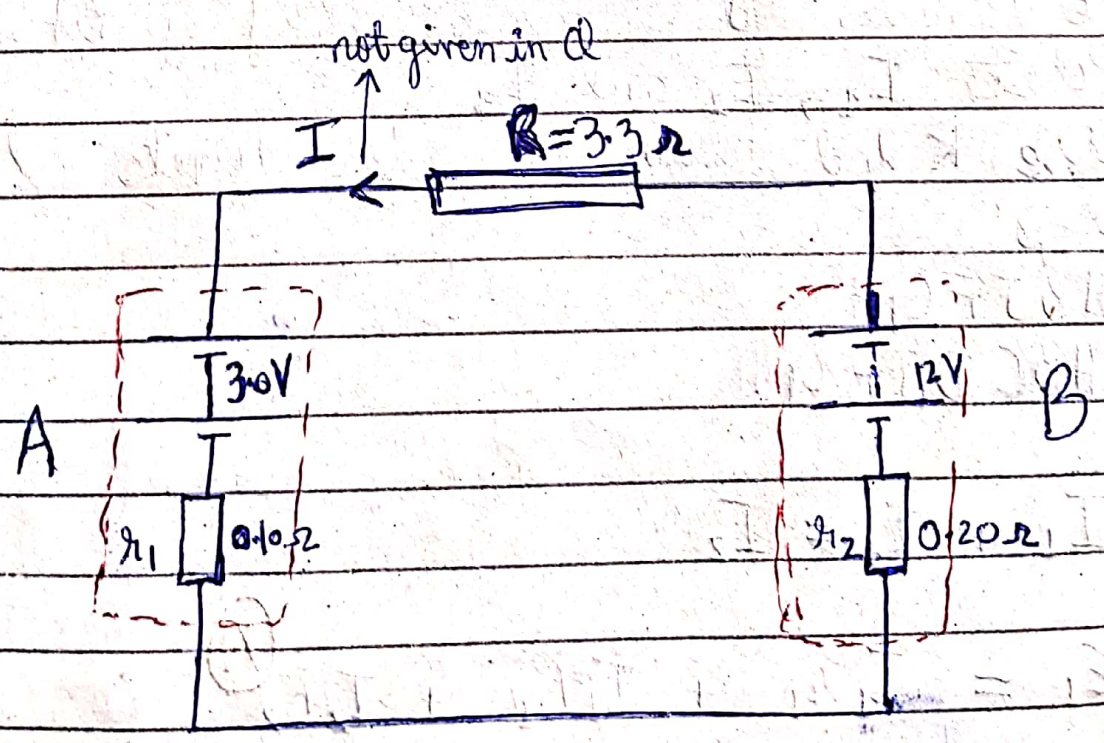 not given in Q
I
R=3.3 Ω
3.0V
12V
A
B
r₁
0.10Ω
r₂
0.20Ω